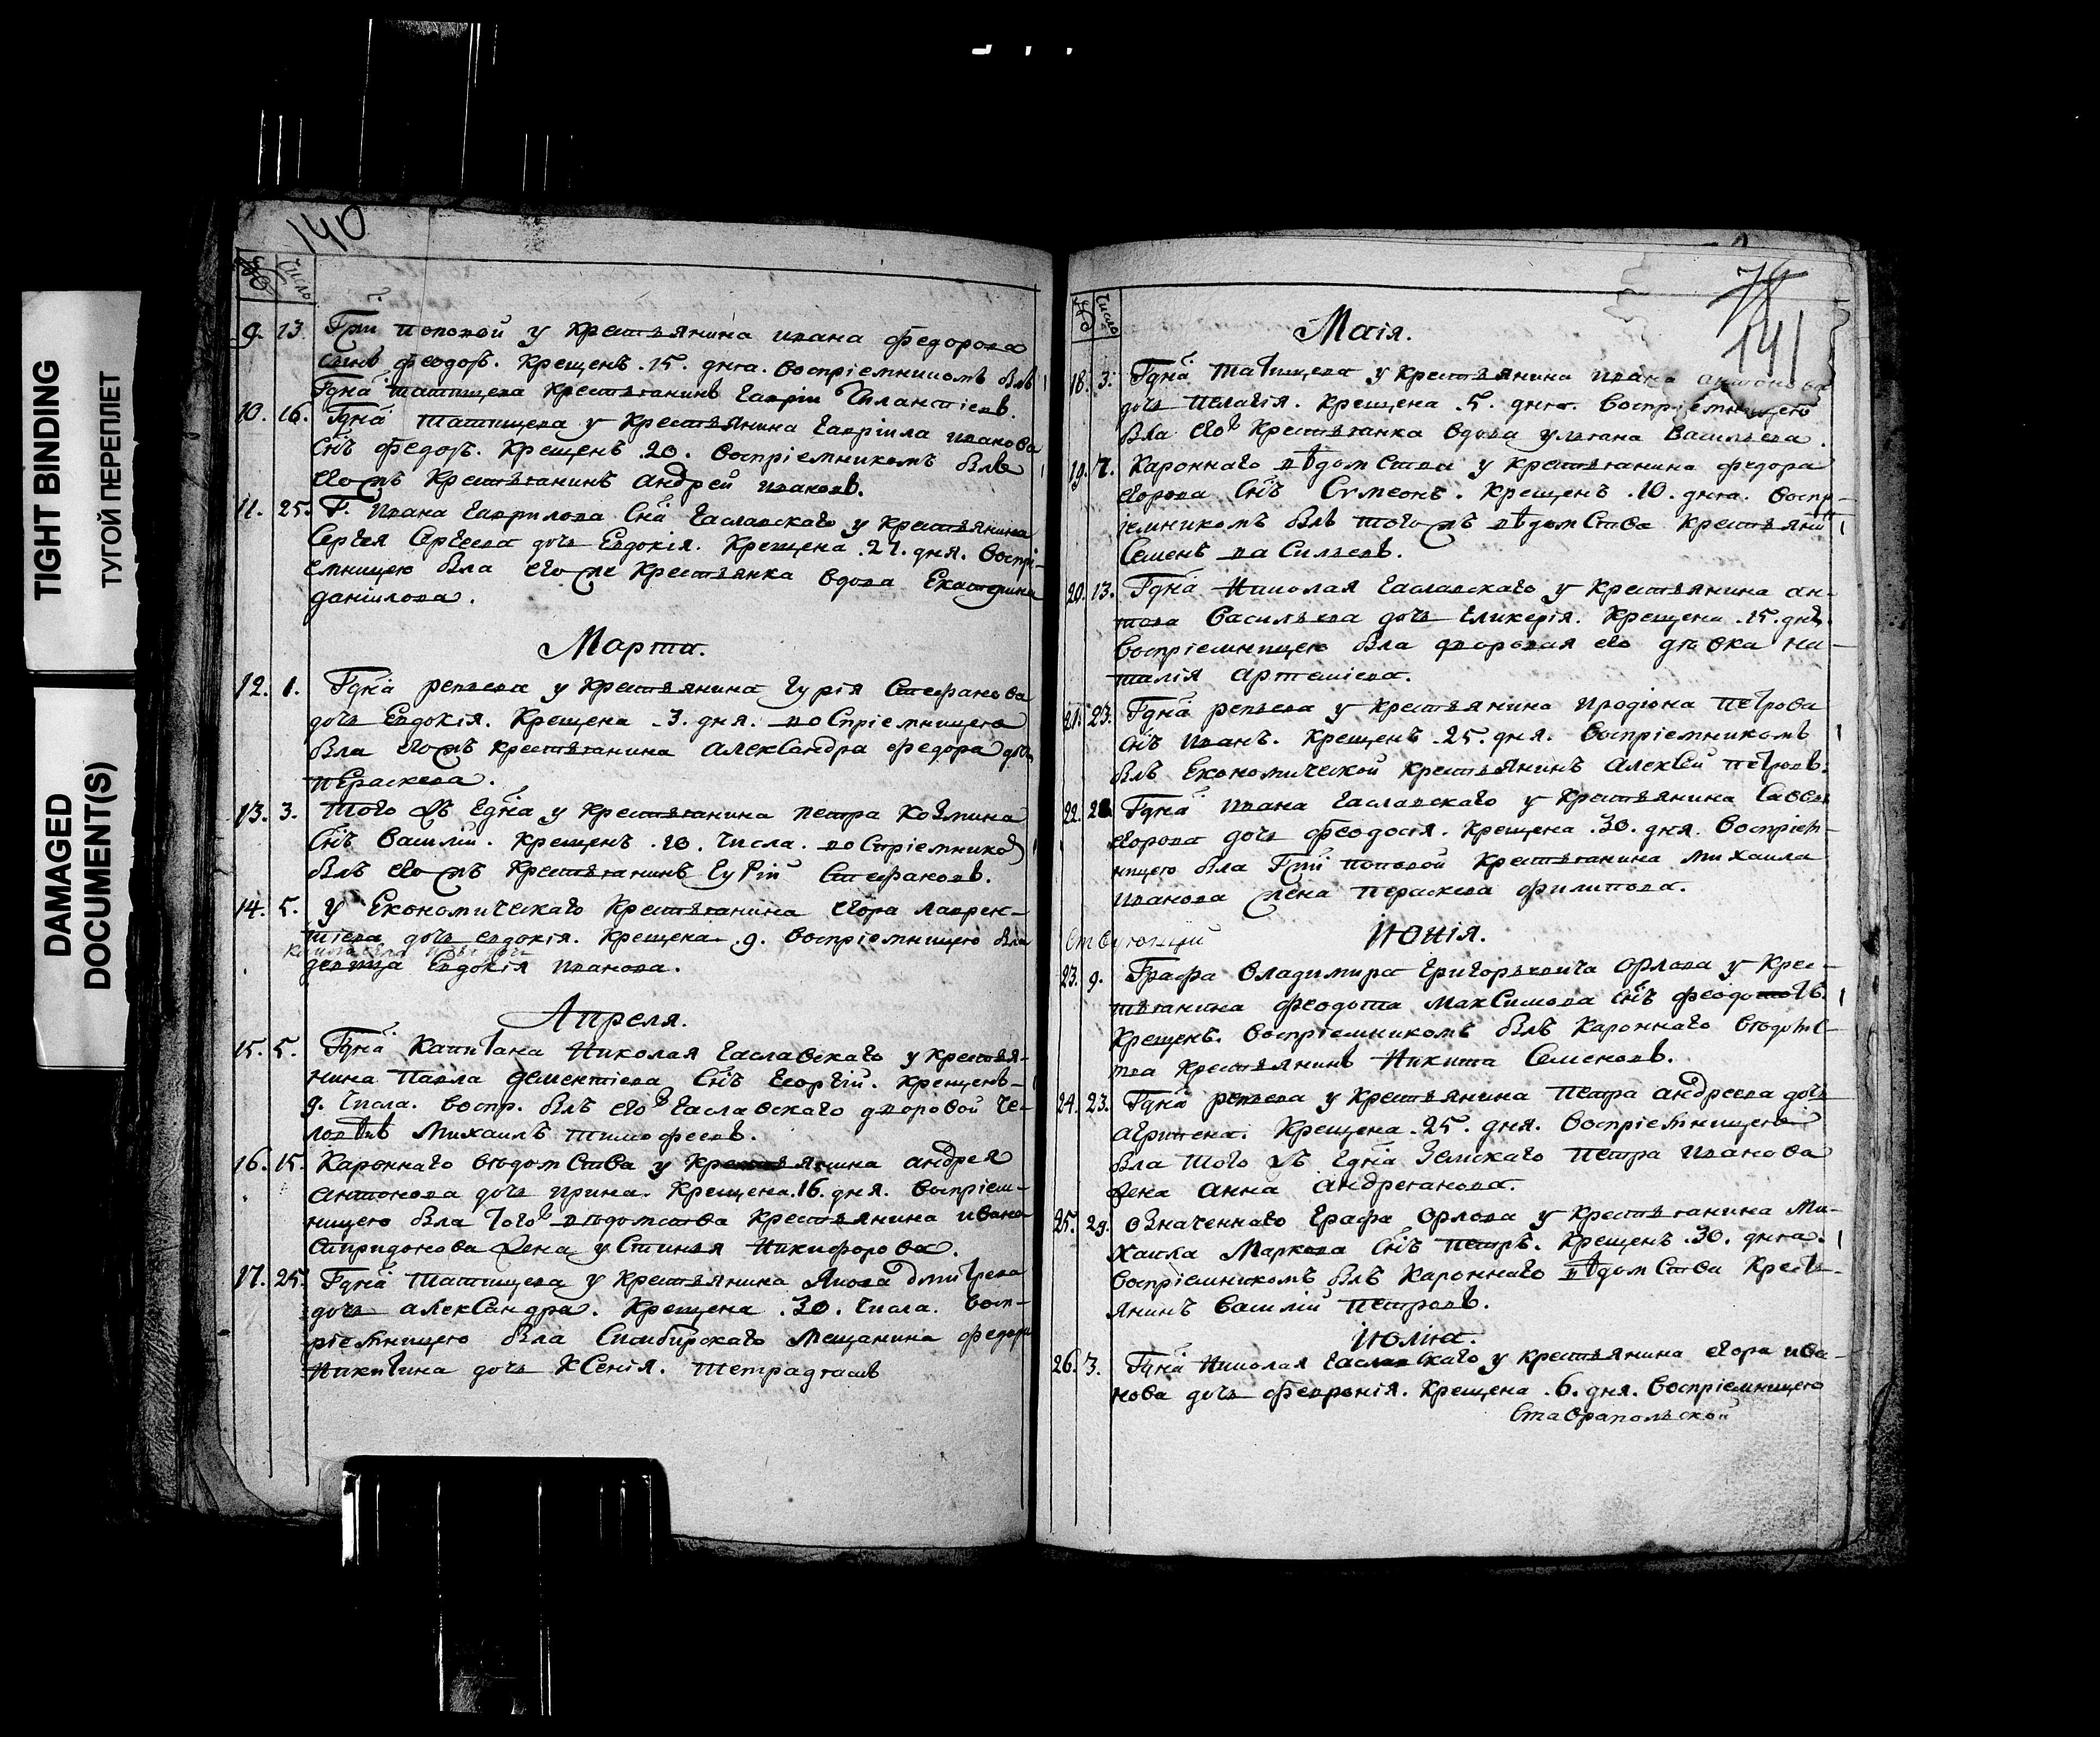 TIGHT BINDING
ТУГОЙ ПЕРЕПЛЕТ
DAMAGED
DOCUMENT(S)
140
№ Число
9. 13. Гжи поповой у крестьянина ивана федорова
сынъ феодоръ. Крещенъ .15. дня. Воспріемникомъ былъ
Гдна татищева крестьянинъ гавріи
10. 16. Гдна татищева у крестьянина гавріила иванова
снъ федоръ. Крещенъ 20. воспріемникомъ былъ
егожъ крестьянинъ андрей
11. 25. Г. ивана гаврилова сна гаславскаго у крестьянина
Сергея Сргеева дочь Евдокія. Крещена .27. дня. воспрі-
емницею была его же крестьянка вдова Екатерина
даніилова.
Марта.
12. 1. Гдна репьева у крестьянина гурія Стефанова
дочь Евдокія. Крещена .3. дня. воспріемницею
была егожъ крестьянина александра федора дочь
пераскева.
13. 3. того жъ гдна у крестьянина петра козмина
снъ василій. Крещенъ .10. числа. воспріемнико
былъ егожъ крестьянинъ гурій Стефановъ.
14. 5. У Економическаго крестьянина егора лаврен-
тіева дочь евдокія. Крещена .9. воспріемницею была
девица Евдокія иванова.
Апреля.
15. 5. Гдна капитана Николая гаславскаго у крестья-
нина павла дементіева снъ георгій. крещенъ
9. числа. воспр. былъ его гаславскаго дворовой че-
ловѣкъ михаилъ тимофеевъ.
16. 15. Кароннаго вѣдомства у крестьянина андрея
антонова дочь ирина. Крещена .16. дня. воспріем-
ницею была того вѣдомства крестьянина ивана
спиридонова жена устинья Никифорова.
17. 25. Гдна татищева у крестьянина Якова дмитрева
дочь александра. Крещена .30. числа. восп-
ріемницею была Симбирскаго мещанина федора
Никитина дочь Ксенія.
141
№ Число
Маія.
18. 3. Гдна татищева у крестьянина ивана антонова
дочь пелагія. Крещена .5. дня. воспріемницею
была его крестьянка вдова ульяна васильева.
19. 7. Кароннаго вѣдомства у крестьянина федора
егорова снъ Сумеонъ. Крещенъ .10. дня. воспр-
іемникомъ былъ тогожъ вѣдомства крестьяни
Семенъ васильевъ.
20. 13. Гдна Николая гаславскаго у крестьянина ан-
тона васильева дочь гликерія. Крещена .15. дня.
воспріемницею была дворовая его дѣвка на-
талія артеміева.
21. 23. Гдна репьева у крестьянина иродіона петрова
снъ иванъ. Крещенъ .25. дня. воспріемникомъ
былъ Економической крестьянинъ алексѣй петровъ.
22. Гдна ивана гаславскаго у крестьянина
егорова дочь феодосія. Крещена .30. дня. воспріем-
ницею была Гжи поповой крестьянина михаила
иванова жена пераскева филипова.
Іюнія.
23. 9. Графа Владимира григорьевича орлова у крес-
тьянина феодота максимова снъ феодотъ.
крещенъ. воспріемникомъ былъ кароннаго вѣдомс-
тва крестьянинъ Никита Семеновъ.
24. 23. Гдна репьева у крестьянина петра андреева дочь
агрипена. Крещена .25. дня. воспріемницею
была того жъ гдна земскаго петра иванова
жена анна андреянова.
25. 29. означеннаго графа орлова у крестьянина ми-
хаила маркова снъ петръ. Крещенъ .30. дня.
воспріемникомъ былъ кароннаго вѣдомства крест-
янинъ василій петровъ.
Іюлія.
26. 3. Гдна Николая гаславскаго у крестьянина егора ива-
нова дочь февронія. Крещена .6. дня. воспріемницею
Ставрапольской